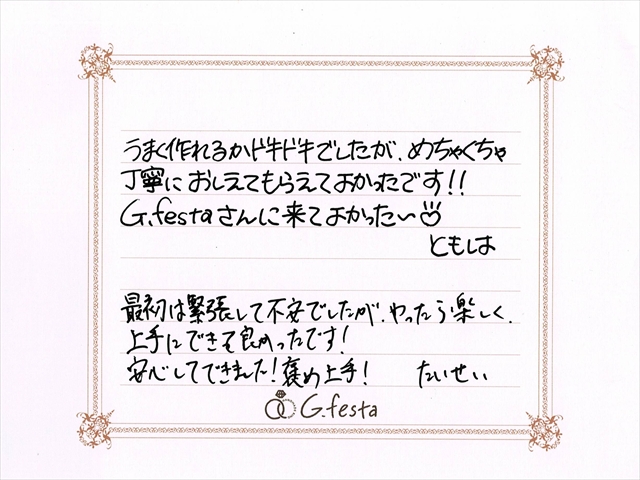 うまく作れるかドキドキでしたが、めちゃくちゃ
丁寧におしえてもらえてよかったです!!
G.festaさんに来てよかったい〜
ともしは
最初は緊張して不安でしたが、やったら楽しく、
上手にできて良かったです!
安心してできました!褒め上手! たいせい
G.festa